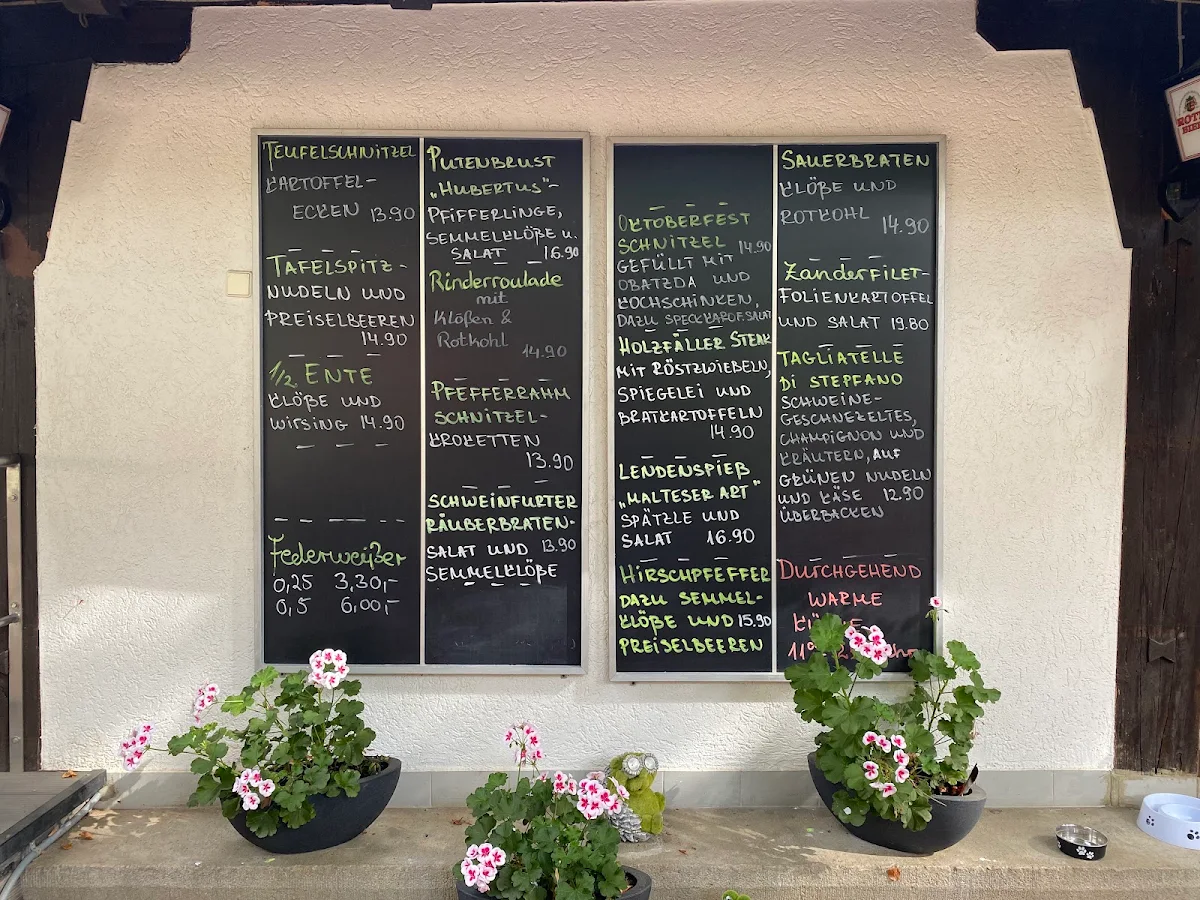 TEUFELSCHNITZEL
KARTOFFEL-
ECKEN 13.90
TAFELSPITZ-
NUDELN UND
PREISELBEEREN
14.90
1/2 ENTE
KLÖßE UND
WIRSING 14.90
Federweißer
0,25 3,30,-
0,5 6,00,-
PUTENBRUST
„HUBERTUS"-
PFIFFERLINGE,
SEMMELKLÖßE U.
SALAT 16.90
Rinderroulade
mit
Klößen &
Rotkohl
14.90
PFEFFERRAHM
SCHNITZEL-
KROKETTEN
13.90
SCHWEINFURTER
RÄUBERBRATEN-
SALAT UND 13.90
SEMMELKLÖßE
OKTOBERFEST
SCHNITZEL 14.90
GEFÜLLT MIT
OBATZDA UND
KOCHSCHINKEN,
DAZU SPECKKAROF.SALAT
HOLZFÄLLER STEAK
MIT RÖSTZWIEBELN,
SPIEGELEI UND
BRATKARTOFFELN
14.90
LENDENSPIEß
„MALTESER ART"
SPÄTZLE UND
SALAT 16.90
HIRSCHPFEFFER
DAZU SEMMEL-
KLÖßE UND 15.90
PREISELBEEREN
SAUERBRATEN
KLÖßE UND
ROTKOHL
14.90
Zanderfilet-
FOLIENKARTOFFEL
UND SALAT 19.80
TAGLIATELLE
DI STEPFANO
SCHWEINE-
GESCHNEZELTES,
CHAMPIGNON UND
KRÄUTERN, AUF
GRÜNEN NUDELN
UND KÄSE 12.90
ÜBERBACKEN
DURCHGEHEND
WARME
ROTH
BIER